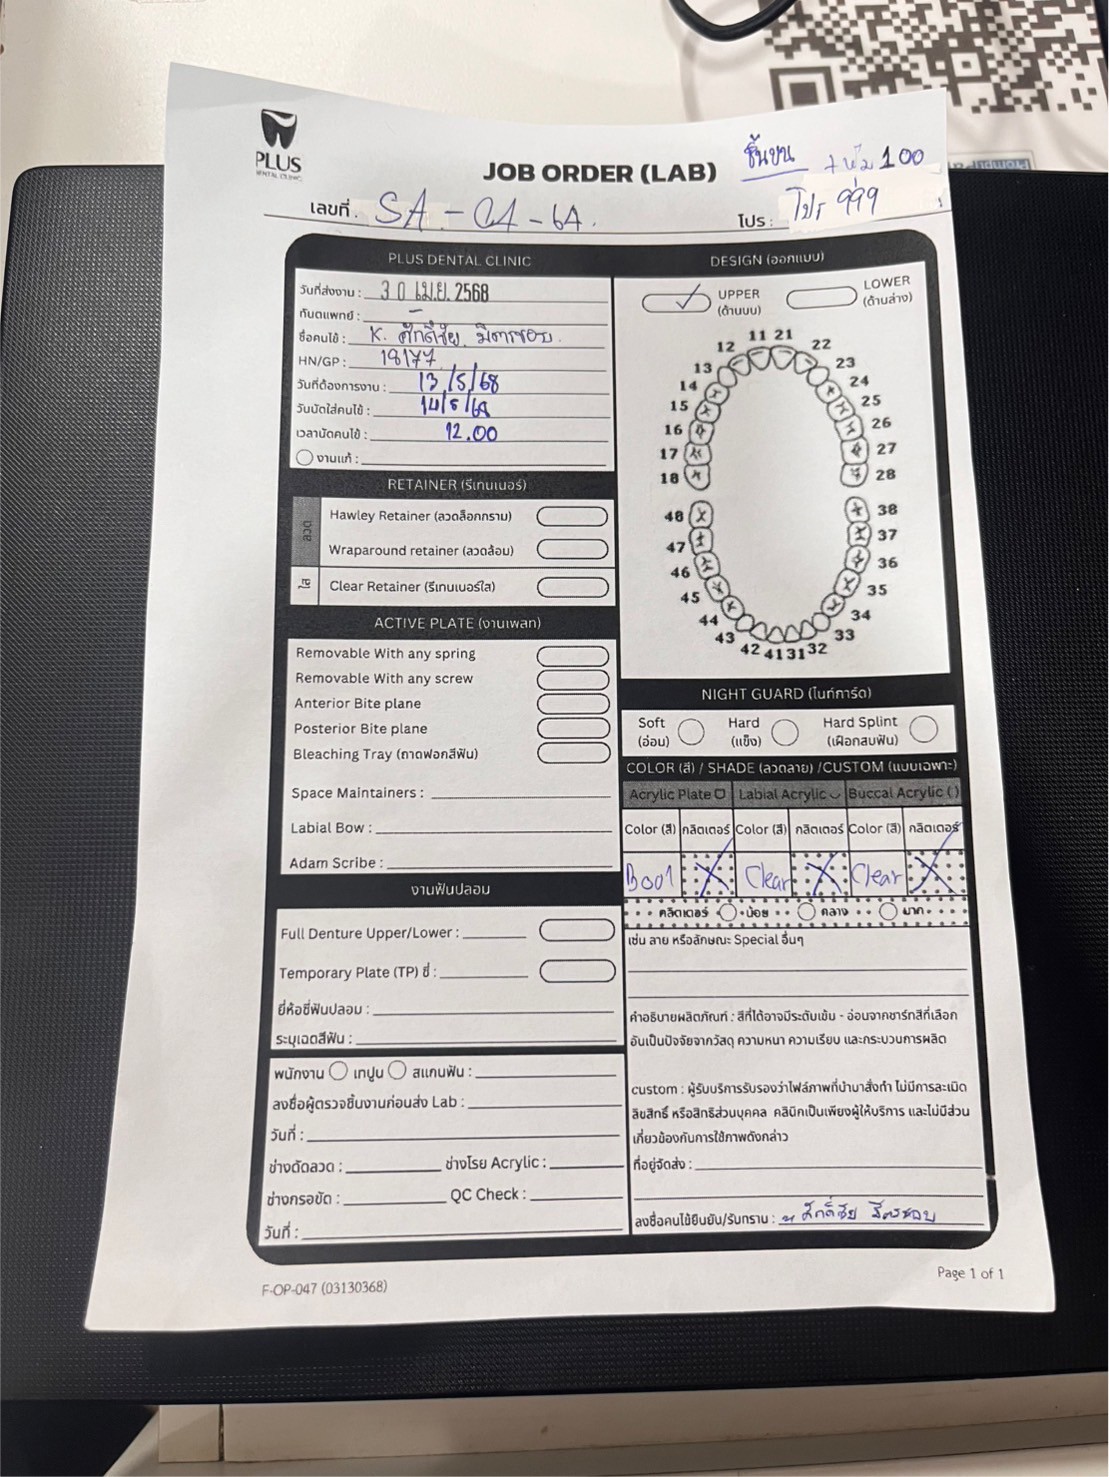 PLUS
DENTAL CLINIC
JOB ORDER (LAB)
ชิ้นบน
100
เลขที่ . SA - 04 - 64 .
โปร : โปร 999
PLUS DENTAL CLINIC
วันที่ส่งงาน : 30 เม.ย. 2568
ทันตแพทย์ : -
ชื่อคนไข้ : K. ศักดิ์ชัย มิตรชอบ
HN/GP : 18177
วันที่ต้องการงาน : 13/5/68
วันนัดใส่คนไข้ : 14/5/68
เวลานัดคนไข้ : 12.00
งานแก้ :
RETAINER (รีเทนเนอร์)
ลวด
Hawley Retainer (ลวดล็อกกราม)
Wraparound retainer (ลวดล้อม)
ใส
Clear Retainer (รีเทนเนอร์ใส)
ACTIVE PLATE (งานเพลท)
Removable With any spring
Removable With any screw
Anterior Bite plane
Posterior Bite plane
Bleaching Tray (ถาดฟอกสีฟัน)
Space Maintainers :
Labial Bow :
Adam Scribe :
งานฟันปลอม
Full Denture Upper/Lower :
Temporary Plate (TP) ซี่ :
ยี่ห้อซี่ฟันปลอม :
ระบุเฉดสีฟัน :
พนักงาน เทปูน สแกนฟัน :
ลงชื่อผู้ตรวจชิ้นงานก่อนส่ง Lab :
วันที่ :
ช่างดัดลวด : ช่างโรย Acrylic :
ช่างกรอขัด : QC Check :
วันที่ :
DESIGN (ออกแบบ)
UPPER
(ด้านบน)
LOWER
(ด้านล่าง)
11 21
12 22
13 23
14 24
15 25
16 26
17 27
18 28
48 38
47 37
46 36
45 35
44 34
43 33
42 41 31 32
NIGHT GUARD (ไนท์การ์ด)
Soft
(อ่อน)
Hard
(แข็ง)
Hard Splint
(เฝือกสบฟัน)
COLOR (สี) / SHADE (ลวดลาย) /CUSTOM (แบบเฉพาะ)
Acrylic Plate Labial Acrylic Buccal Acrylic ( )
Color (สี) กลิตเตอร์ Color (สี) กลิตเตอร์ Color (สี) กลิตเตอร์
B001 X Clear X Clear X
กลิตเตอร์ น้อย กลาง มาก
เช่น ลาย หรือลักษณะ Special อื่นๆ
คำอธิบายผลิตภัณฑ์ : สีที่ได้อาจมีระดับเข้ม - อ่อนจากชาร์ทสีที่เลือก
อันเป็นปัจจัยจากวัสดุ ความหนา ความเรียบ และกระบวนการผลิต
custom : ผู้รับบริการรับรองว่าไฟล์ภาพที่นำมาสั่งทำ ไม่มีการละเมิด
ลิขสิทธิ์ หรือสิทธิส่วนบุคคล คลินิกเป็นเพียงผู้ให้บริการ และไม่มีส่วน
เกี่ยวข้องกับการใช้ภาพดังกล่าว
ที่อยู่จัดส่ง :
ลงชื่อคนไข้ยืนยัน/รับทราบ : ศักดิ์ชัย มิตรชอบ
F-OP-047 (03130368)
Page 1 of 1